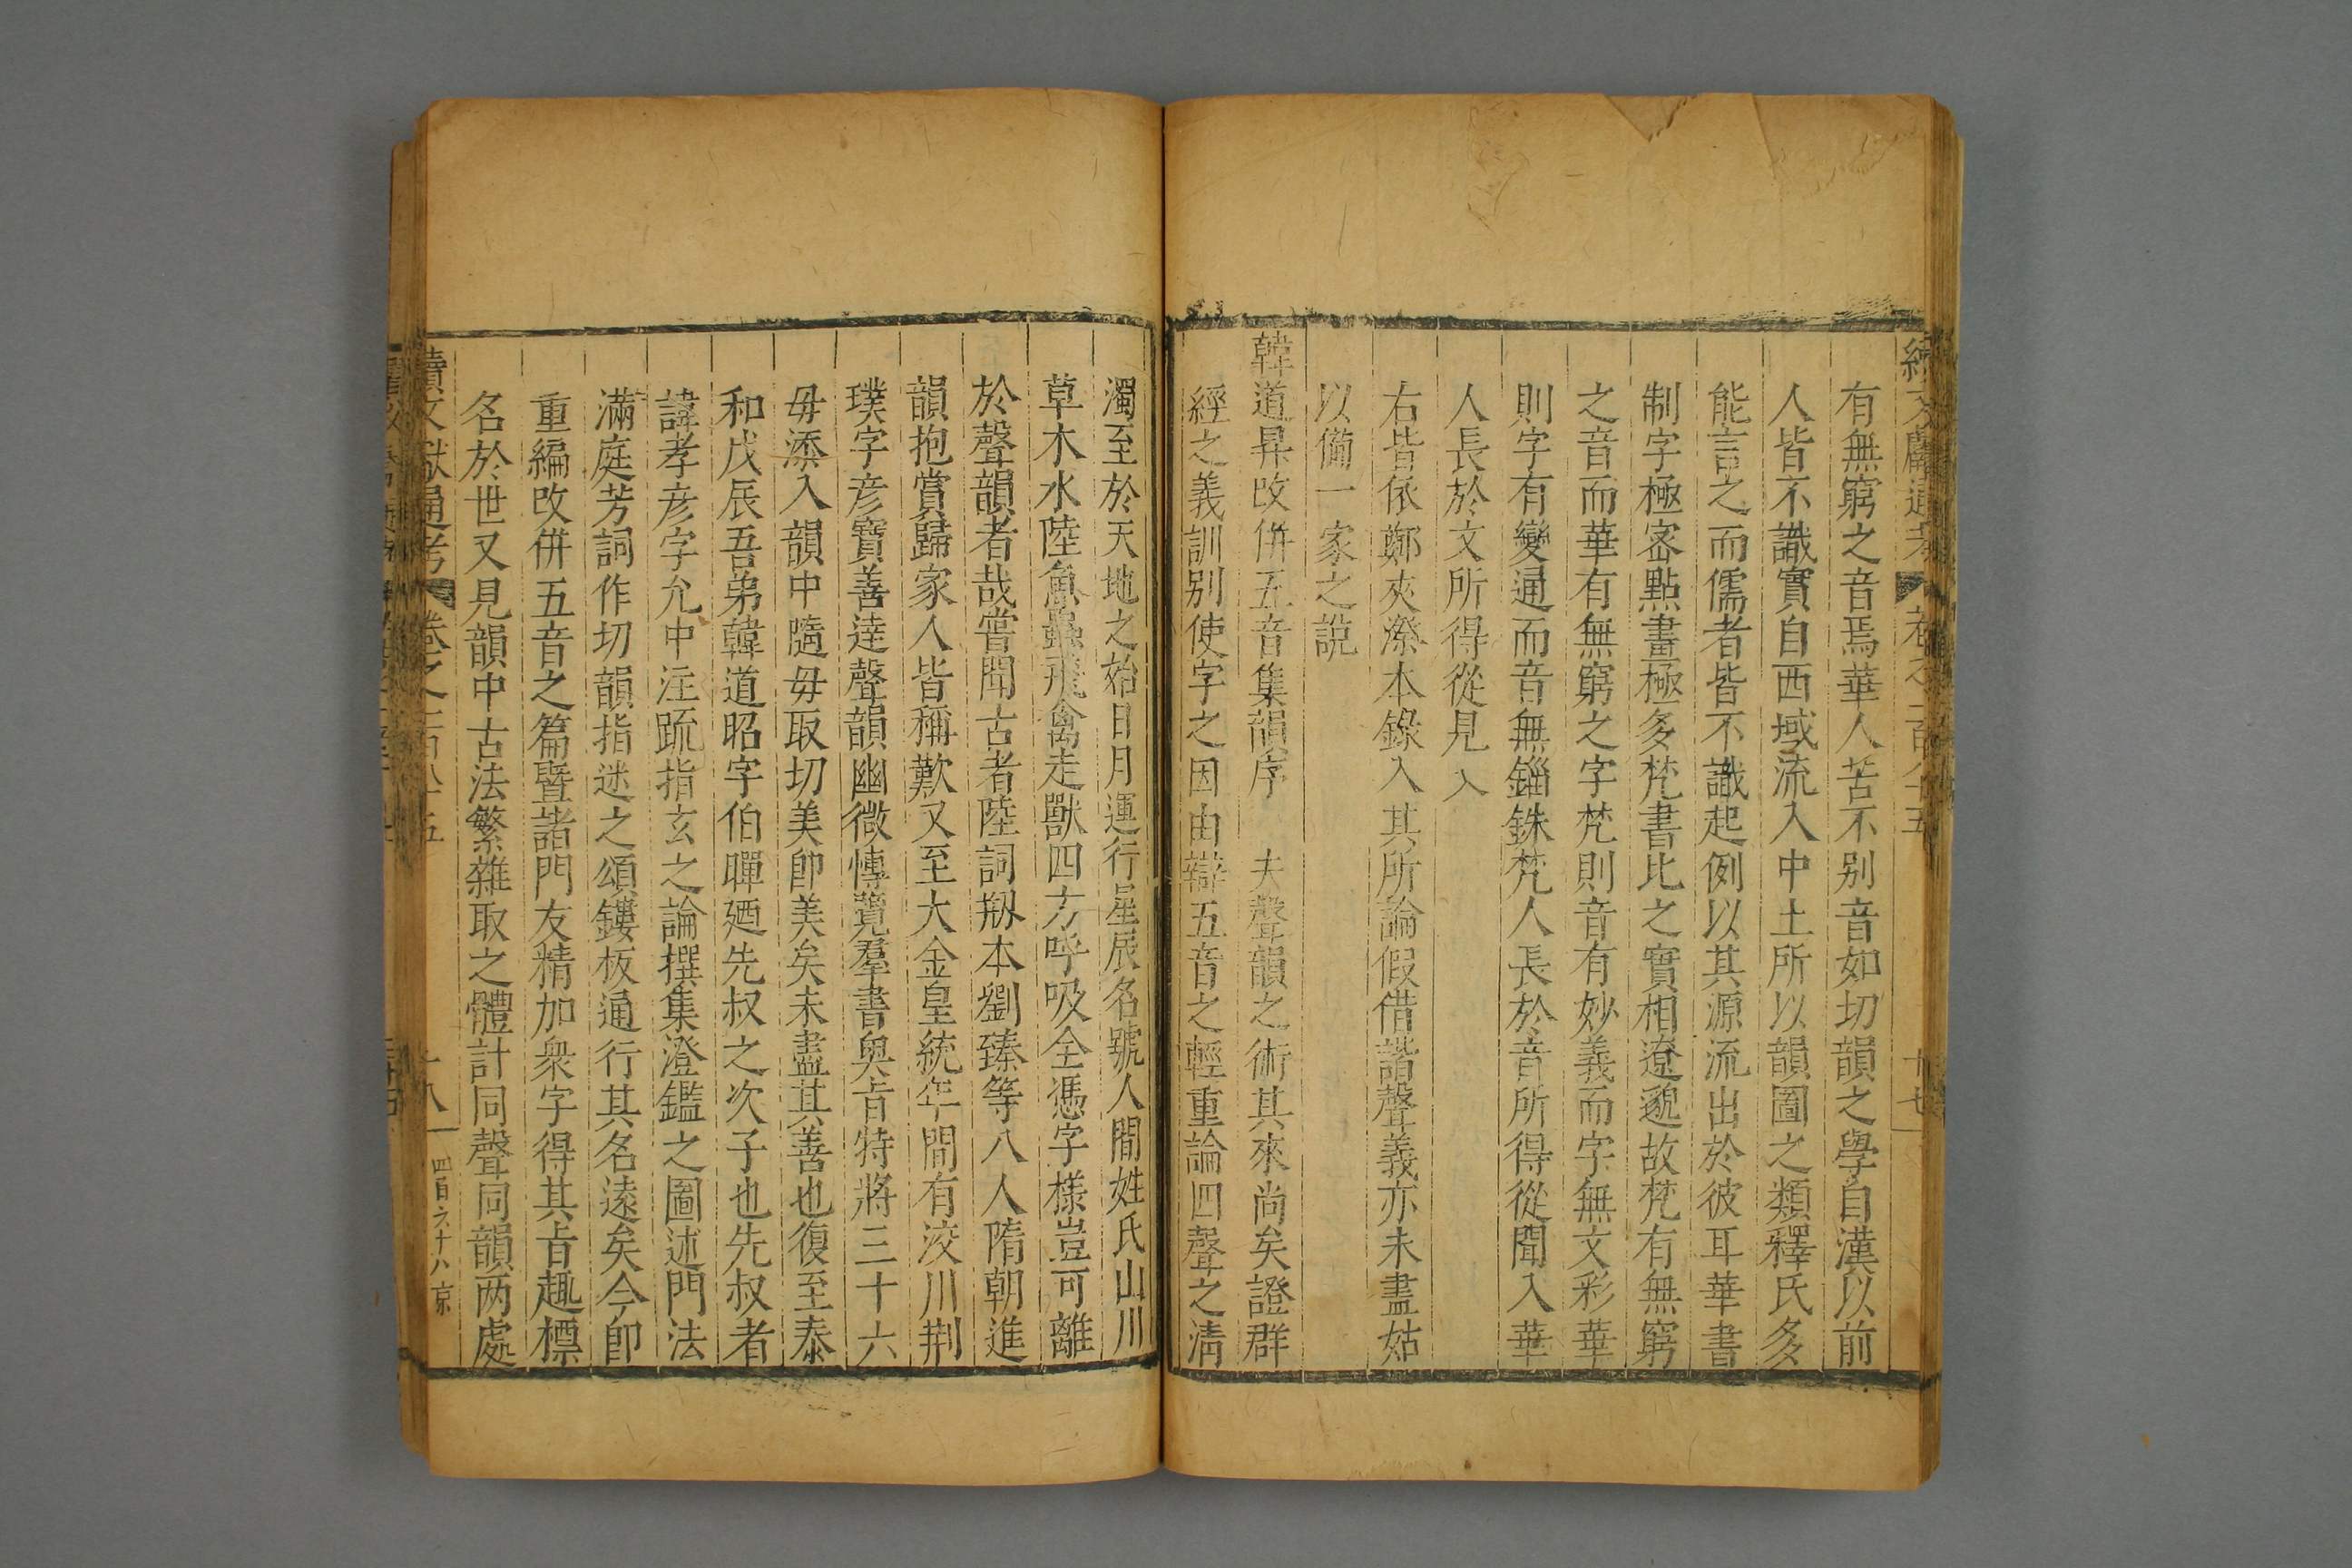 續文獻通考 卷之一百八十五 十七
有無窮之音焉華人苦不别音如切韻之學自漢以前
人皆不識實自西域流入中土所以韻圖之類釋氏多
能言之而儒者皆不識起例以其源流出於彼耳華書
制字極宻點畫極多梵書比之實相遼邈故梵有無窮
之音而華有無窮之字梵則音有妙義而字無文彩華
則字有變通而音無錙銖梵人長於音所得從聞入華
人長於文所得從見入
右皆依鄭夾漈本錄入其所論假借諧聲義亦未盡姑
以備一家之說
韓道昇改併五音集韻序 夫聲韻之術其來尚矣證群
經之義訓别使字之因由辯五音之輕重論四聲之清
濁至於天地之始日月運行星辰名號人間姓氏山川
草木水陸魚蟲飛禽走獸四方呼吸全憑字樣豈可離
於聲韻者哉嘗聞古者陸詞刱本劉臻等八人隋朝進
韻抱賞歸家人皆稱歎又至大金皇統年間有洨川荆
璞字彦寶善逹聲韻幽微慱覽羣書奥㫖特將三十六
毋添入韻中隨毋取切美卽美矣未盡其善也復至泰
和戊辰吾弟韓道昭字伯暉廼先叔之次子也先叔者
諱孝彦字允中注疏指玄之論撰集澄鑑之圖述門法
滿庭芳詞作切韻指迷之頌鏤板通行其名逺矣今卽
重編改併五音之篇曁諸門友精加衆字得其㫖趣標
名於世又見韻中古法繁雜取之體計同聲同韻两處
續文獻通考 卷之一百八十五 十八 四百六十八 京